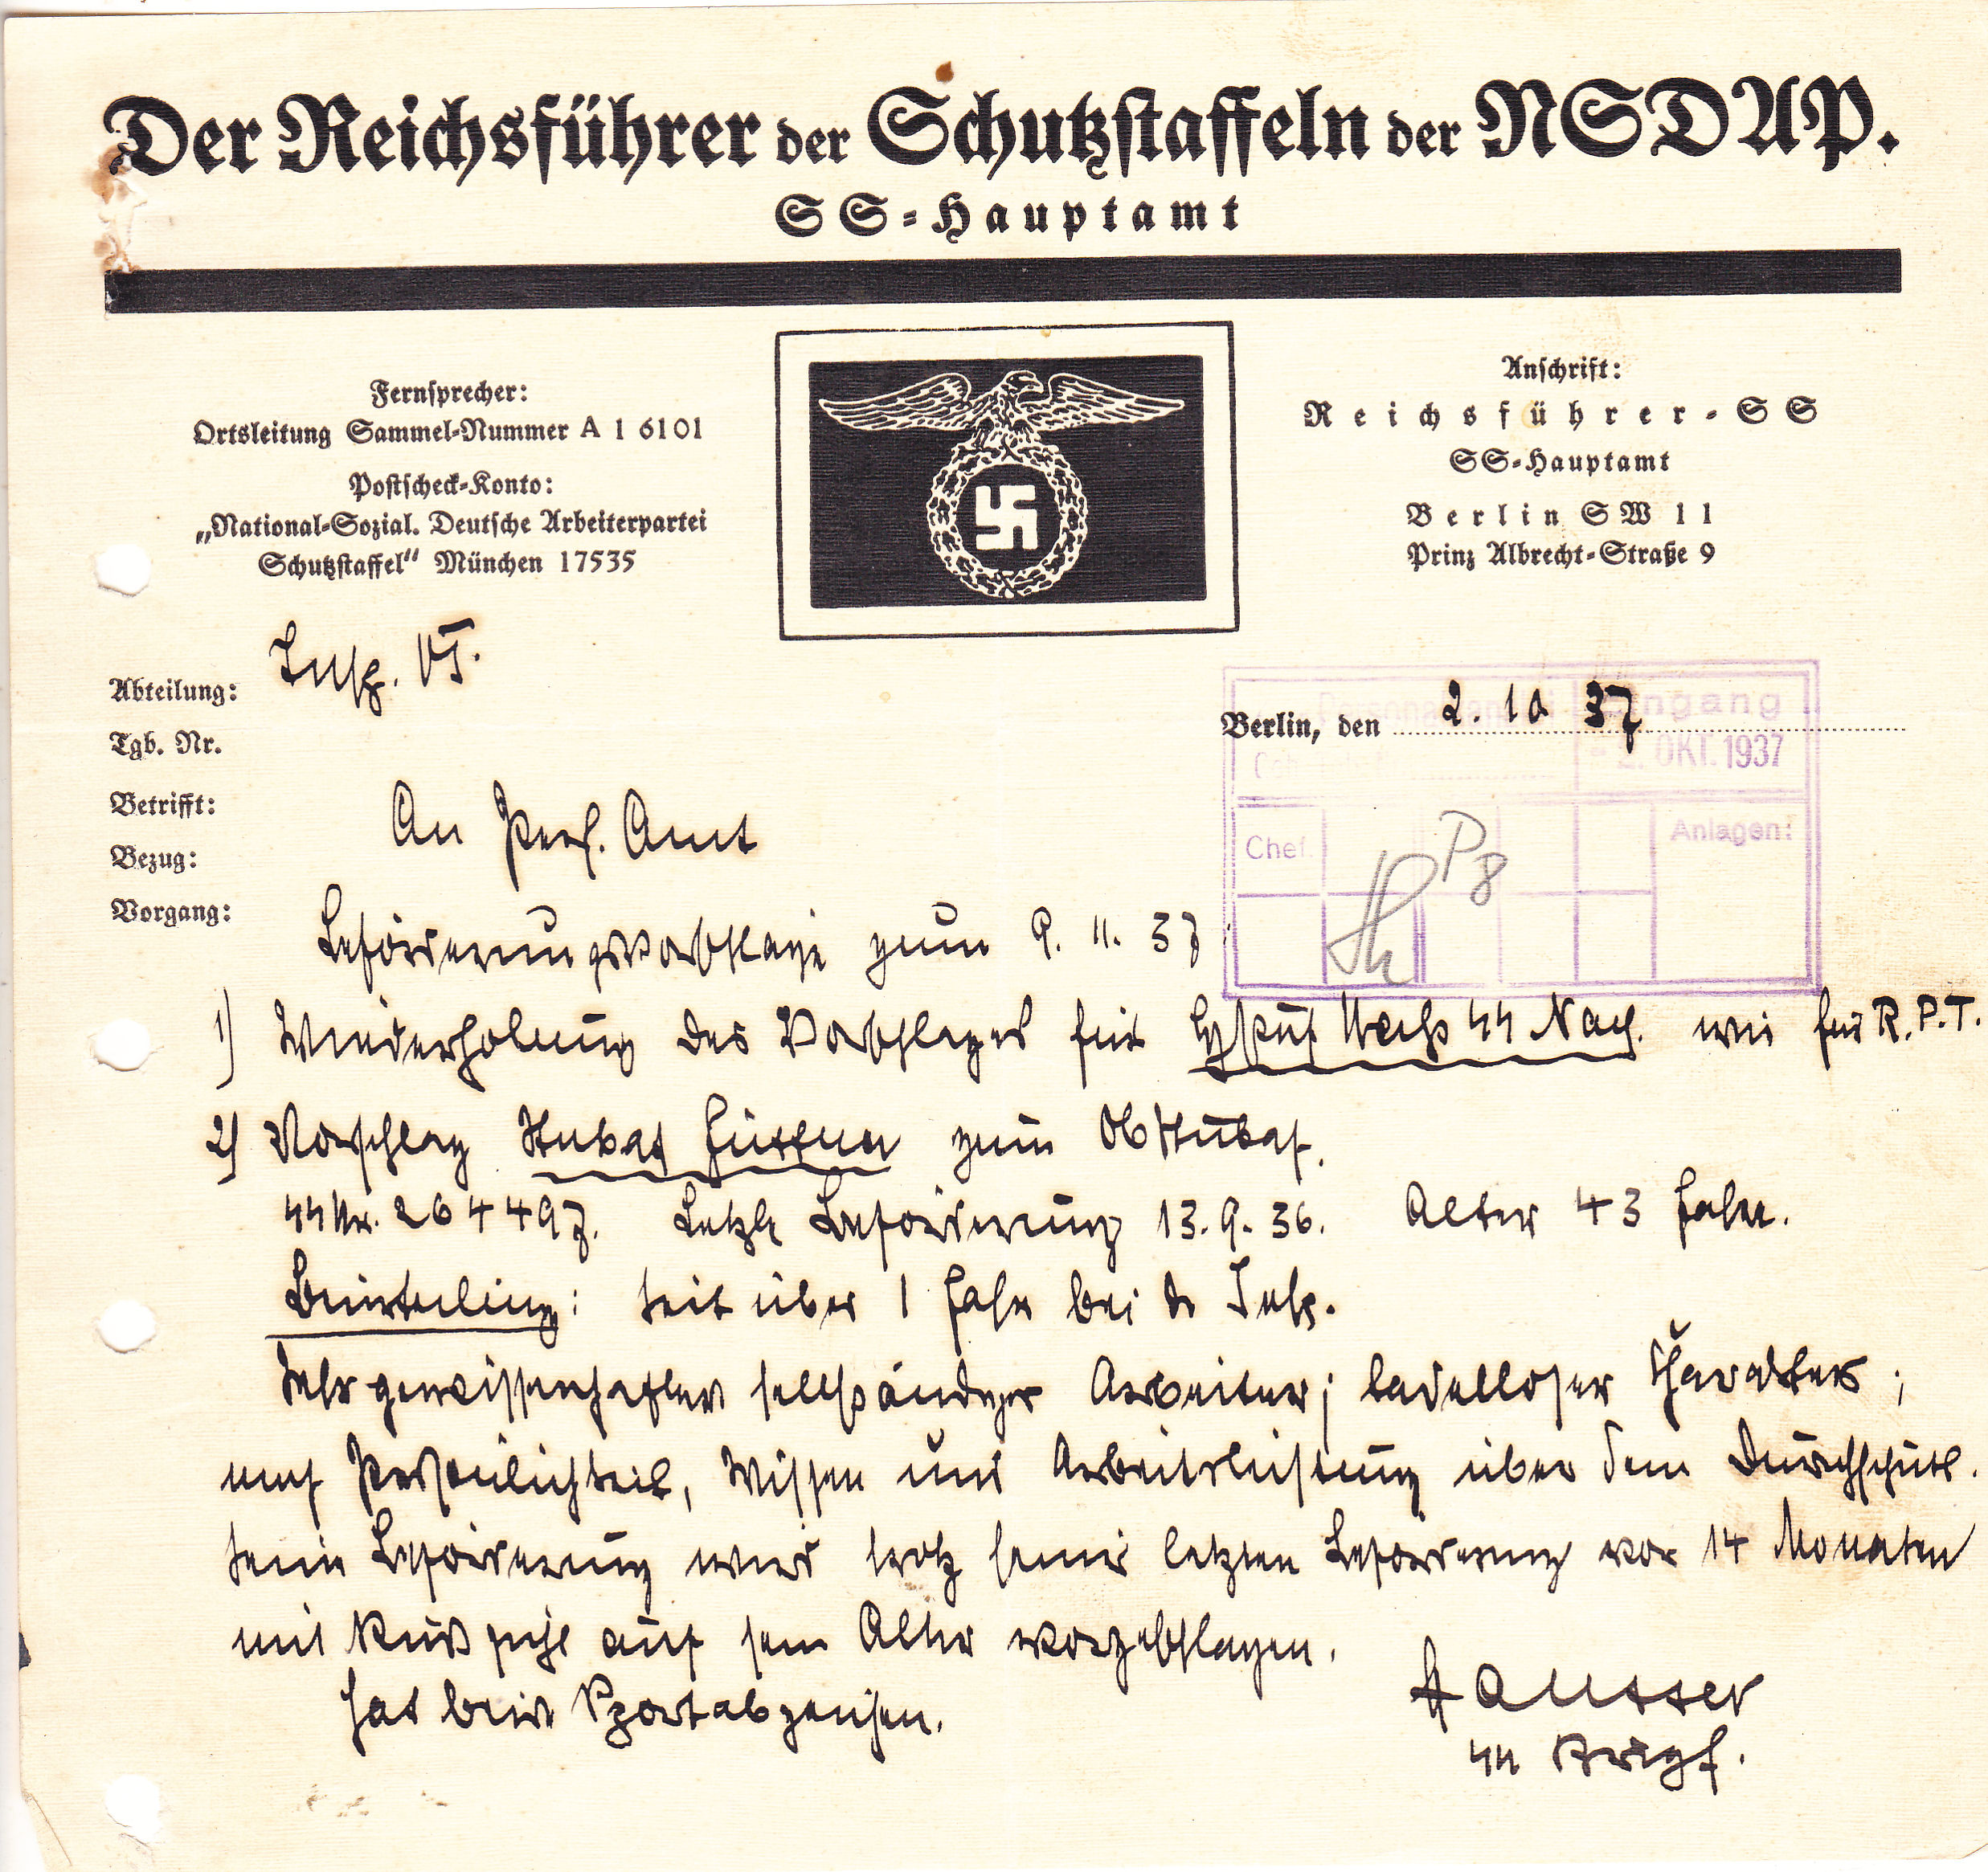 Der Reichsführer der Schutzstaffeln der NSDAP.
SS-Hauptamt
Fernsprecher:
Ortsleitung Sammel-Nummer A 1 6101
Postscheck-Konto:
„National-Sozial. Deutsche Arbeiterpartei
Schutzstaffel" München 17535
Anschrift:
Reichsführer-SS
SS-Hauptamt
Berlin SW 11
Prinz Albrecht-Straße 9
Abteilung: Insp. VT.
Tgb. Nr.
Betrifft:
Bezug:
Vorgang:
Berlin, den 2. 10 37
Eingang
2. OKT. 1937
Chef
Anlagen:
P 8
An Pers. Amt
Beförderungsvorschläge zum 9. 11. 37
1) Wiederholung des Vorschlages für SS Nach. wie für R.P.T.
2) Vorschlag Stubaf zum Obstubaf.
SS Nr. 264497. Letzte Beförderung 13. 9. 36. Alter 43 Jahre.
Beurteilung: Seit über 1 Jahr bei d. Insp.
Sehr gewissenhafter selbständiger Arbeiter; tadelloser Charakter;
nach Persönlichkeit, Wissen und Arbeitsleistung über dem Durchschnitt.
Seine Beförderung wird trotz seiner letzten Beförderung vor 14 Monaten
mit Rücksicht auf sein Alter vorgeschlagen.
Hat beide Sportabzeichen.
Hausser
SS Brigf.